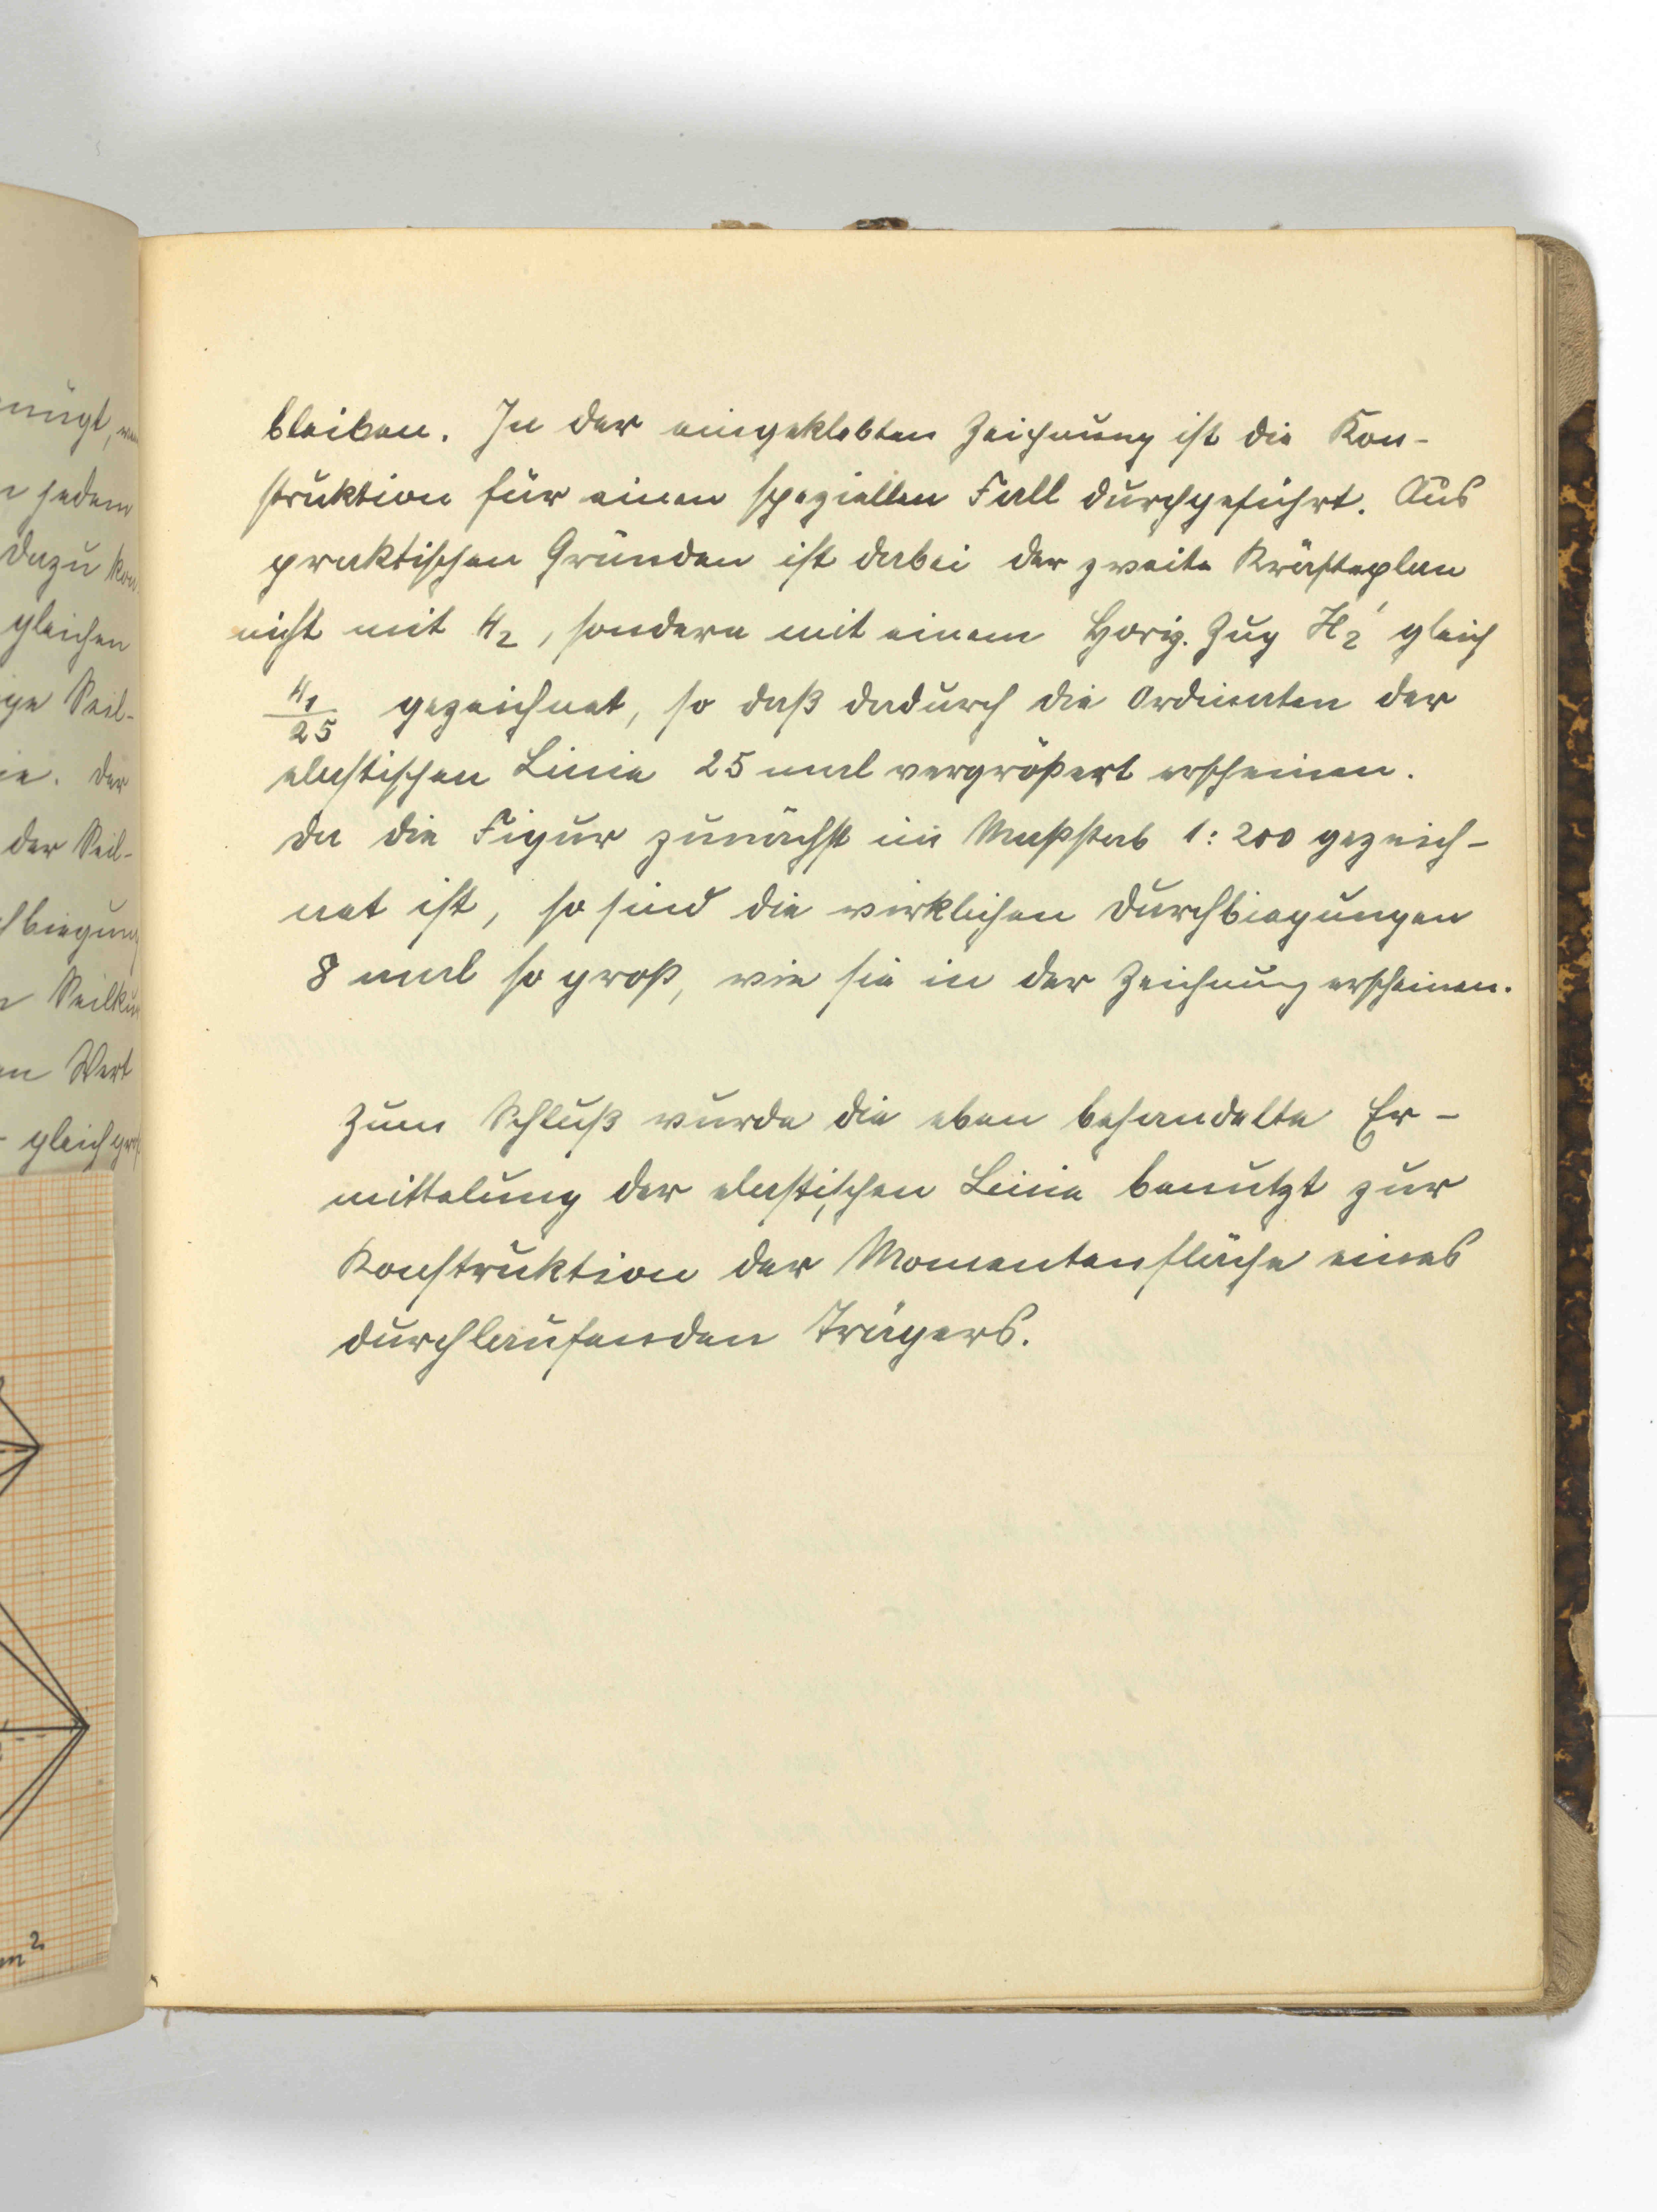 bleiben. In der eingeklebten Zeichnung ist die Kon-
struktion für einen speziellen Fall durchgeführt. Aus
praktischen Gründen ist dabei der zweite Kräfteplan
nicht mit H₂, sondern mit einem Horiz. Zug H₂' gleich
H₁/25 gezeichnet, so daß dadurch die Ordinaten der
elastischen Linie 25 mal vergrößert erscheinen.
Da die Figur zunächst im Maßstab 1:200 gezeich-
net ist, so sind die wirklichen Durchbiegungen
8 mal so groß, wie sie in der Zeichnung erscheinen.
Zum Schluß wurde die eben behandelte Er-
mittelung der elastischen Linie benutzt zur
Konstruktion der Momentenfläche eines
durchlaufenden Trägers.
jedem
dazu
gleichen
Seil-
der
der Seil-
Wert
gleich
m²